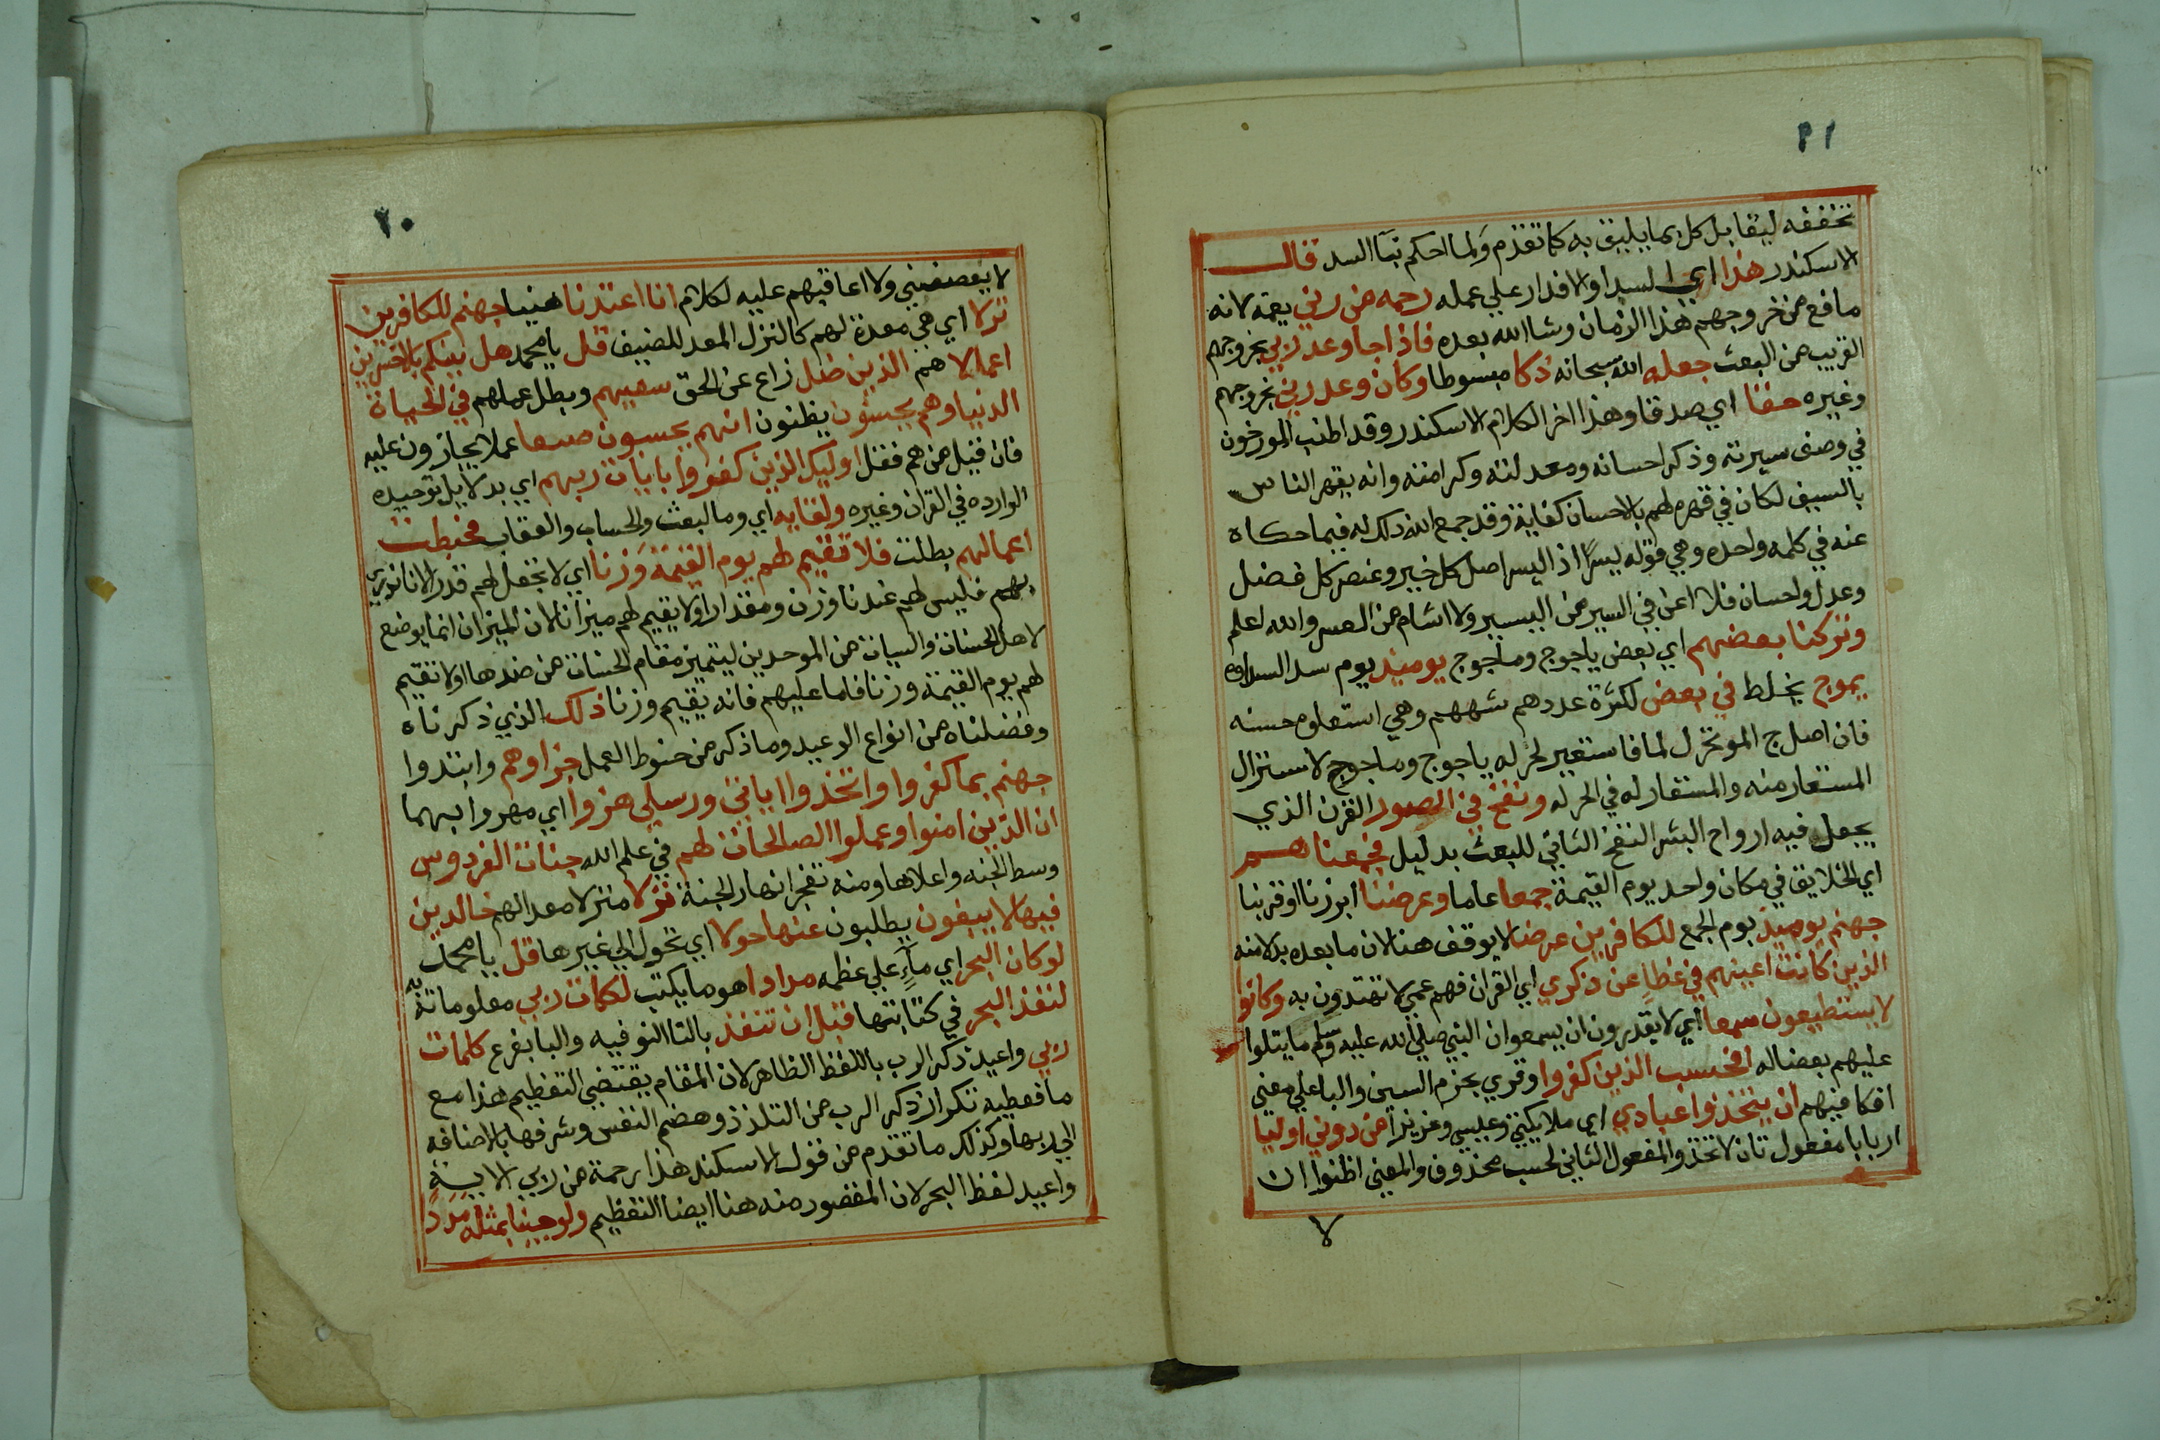 ٢١
تخففه ليقابل كل بما يليق به كما تقدم ولما احكم بنا السد قال
الاسكندر هذا اي السد او الاقدار علي عمله رحمه من ربي يعمه لانه
مافع من خروجهم هذا الزمان وشا الله بعده فاذا جا وعد ربي بخروجهم
القريب من البعث جعله الله سبحانه دكا مبسوطا وكان وعد ربي بخروجهم
وغيره حقا اي صدقا وهذا اخر الكلام الاسكندر وقد اطنب المورخون
في وصف سيرته وذكر احسانه ومعدلته وكرامته وانه يقهر الناس
بالسيف لكان في قهره لهم بالاحسان كفاية وقد جمع الله ذلك له فيما حكاه
عنه في كلمه واحده وهي قوله يسرا اذ اليسر اصل كل خير وعنصر كل فضل
وعدل واحسان فلا اعز في السير من اليسير ولا اشام من العسر والله اعلم
وتركنا بعضهم اي بعض ياجوج وماجوج يوميذ يوم سد السد
يموج يختلط في بعض لكثرة عددهم شبههم وهي استعلوم حسنه
فان اصل ج الموتخرل لما فاستعير لحر له ياجوج وماجوج لاستنزال
المستعار منه والمستعار له في الحر له ونفخ في الصور القرن الذي
يجعل فيه ارواح البشر النفخ الثاني للبعث بدليل فجمعناهم
اي الخلايق في مكان واحد يوم القيمة جمعا عاما وعرضنا ابرزنا او قربنا
جهنم يوميذ يوم الجمع للكافرين عرضا لا يوقف هنا لان ما بعده بدلا منه
الذين كانت اعينهم في غطا عن ذكري اي القران فهم عمي لا تهتدون به وكانوا
لا يستطيعون سمعا اي لا يقدرون ان يسمعوا ن النبي صلي الله عليه وسلم ما يتلوا
عليهم بعضا له افحسب الذين كفروا وقري بجزم السين والبا علي معني
افكافيهم ان يتخذوا عبادي اي ملايكتي وعيسي وعزيرا من دوني اوليا
اربابا مفعول ثان لا تخذ والمفعول الثاني لحسب محذوف والمعني اظنوا ان
لا
٢٠
لا يعصفبني ولا اعاقبهم عليه لكلام انا اعتدنا هنيا جهنم للكافرين
نزلا اي هي معدة لهم كالنزل المعد للضيف قل يا محمد هل ننبكم بالاخسرين
اعمالا هم الذين ضل زاع عن الحق سعيهم وبطل عملهم في الحياة
الدنيا وهم يحسبون يظنون انهم يحسنون صنعا عملا يجازون عليه
فان قيل من هم فقل اوليك الذين كفروا بايات ربهم اي بدلايل توحيده
الوارده في القران وغيره ولقايه اي وما لبعث والحساب والعقاب فحبطت
اعمالهم بطلت فلا تقيم لهم يوم القيمة وزنا اي لا نجعل لهم قدر الانا نزري
بهم فليس لهم عندنا وزن ومقدار او لا يقيم لهم ميزانا لان الميزان انما يوضع
لاهل الحسنات والسيات من الموحدين ليتميز مقام الحسنات من ضدها اولا تقيم
لهم يوم القيمة وزنا فاما عليهم فانه يقيم وزنا ذلك الذي ذكرناه
وفضلناه من انواع الوعيد وما ذكر من حنوط العمل جزاوهم وابتدوا
جهنم بما كفروا واتخذوا اياتي ورسلي هزوا اي مهروا بهما
ان الذين امنوا وعملوا الصالحات لهم في علم الله جنات الفردوس
وسط الجنه واعلاها ومنه تفجر انهار الجنة نزلا منزلا معدا لهم خالدين
فيها لا يبغون يطلبون عنها حولا اي تحول الي غيرها قل يا محمد
لو كان البحر اي ماء علي عظمه مدادا هو ما يكتب لكلمات ربي معلوماته
لنفذ البحر في كتابتها قبل ان تنفذ بالتا الفوقيه واليا بفرع كلمات
ربي واعيد ذكر الرب باللفظ الظاهر لان المقام يقتضي التعظيم هذا مع
ما فعطيه تكرار ذكر الرب من التلذذ وهضم النفس وشرفها بالاضافه
الي ربها وكذلك ما تقدم من قول الاسكندر هذا رحمة من ربي الايه
واعيد لفظ البحر لان المقصود منه هنا ايضا التعظيم ولو جينا بمثله مددا